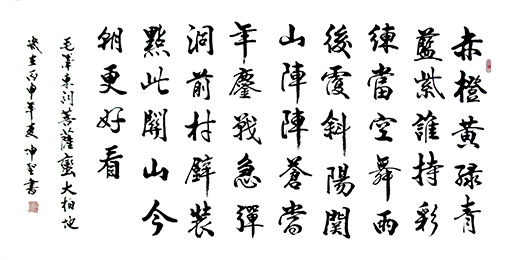 赤橙黃緑青
藍紫誰持彩
練當空舞雨
後復斜陽関
山陣陣蒼當
年鏖戰急彈
洞前村壁裝
點此關山今
朝更好看
毛澤東詞菩薩蠻大柏地
歲在丙申年夏坤書